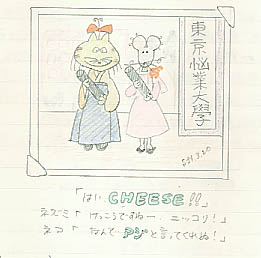 東京悩業大學
S51.3.20
「はい CHEESE!!」
ネズミ「けっこうですねー、ニッコリ!」
ネコ「なんで アジと言ってくれぬ!」